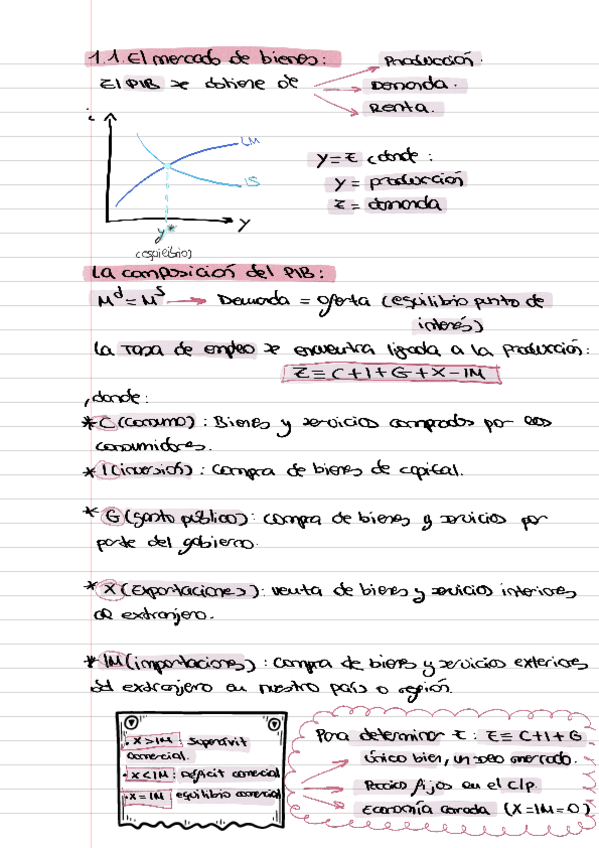 1.1. El mercado de bienes:
El PIB se obtiene de
Producción.
Demanda.
Renta.
i
LM
IS
Y
Y*
(equilibrio)
Y = Z, donde:
Y = producción
Z = demanda
La composición del PIB:
M^d = M^s → Demanda = Oferta (equilibrio punto de
interés)
La Tasa de empleo se encuentra ligada a la producción:
Z ≡ C + I + G + X - IM
, donde:
* C (consumo): Bienes y servicios comprados por los
consumidores.
* I (inversión): Compra de bienes de capital.
* G (gasto público): compra de bienes y servicios por
parte del gobierno.
* X (Exportaciones): venta de bienes y servicios interiores
al extranjero.
* IM (importaciones): compra de bienes y servicios exteriores
del extranjero en nuestro país o región.
· X > IM: Superávit
comercial.
· X < IM: Déficit comercial
· X = IM equilibrio comercial
Para determinar Z: Z ≡ C + I + G
Único bien, un solo mercado.
Precios fijos en el c/p.
Economía cerrada (X = IM = 0)